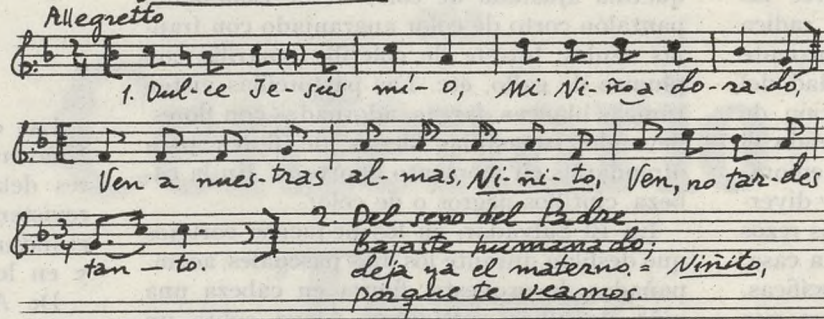 Allegretto
1. Dul-ce Je-sús mí-o, Mi Ni-ño a-do-ra-do,
Ven a nues-tras al-mas, Ni-ñi-to, Ven, no tar-des
tan-to.
2. Del seno del Padre
bajaste humanado;
deja ya el materno, = Niñito,
porque te veamos.